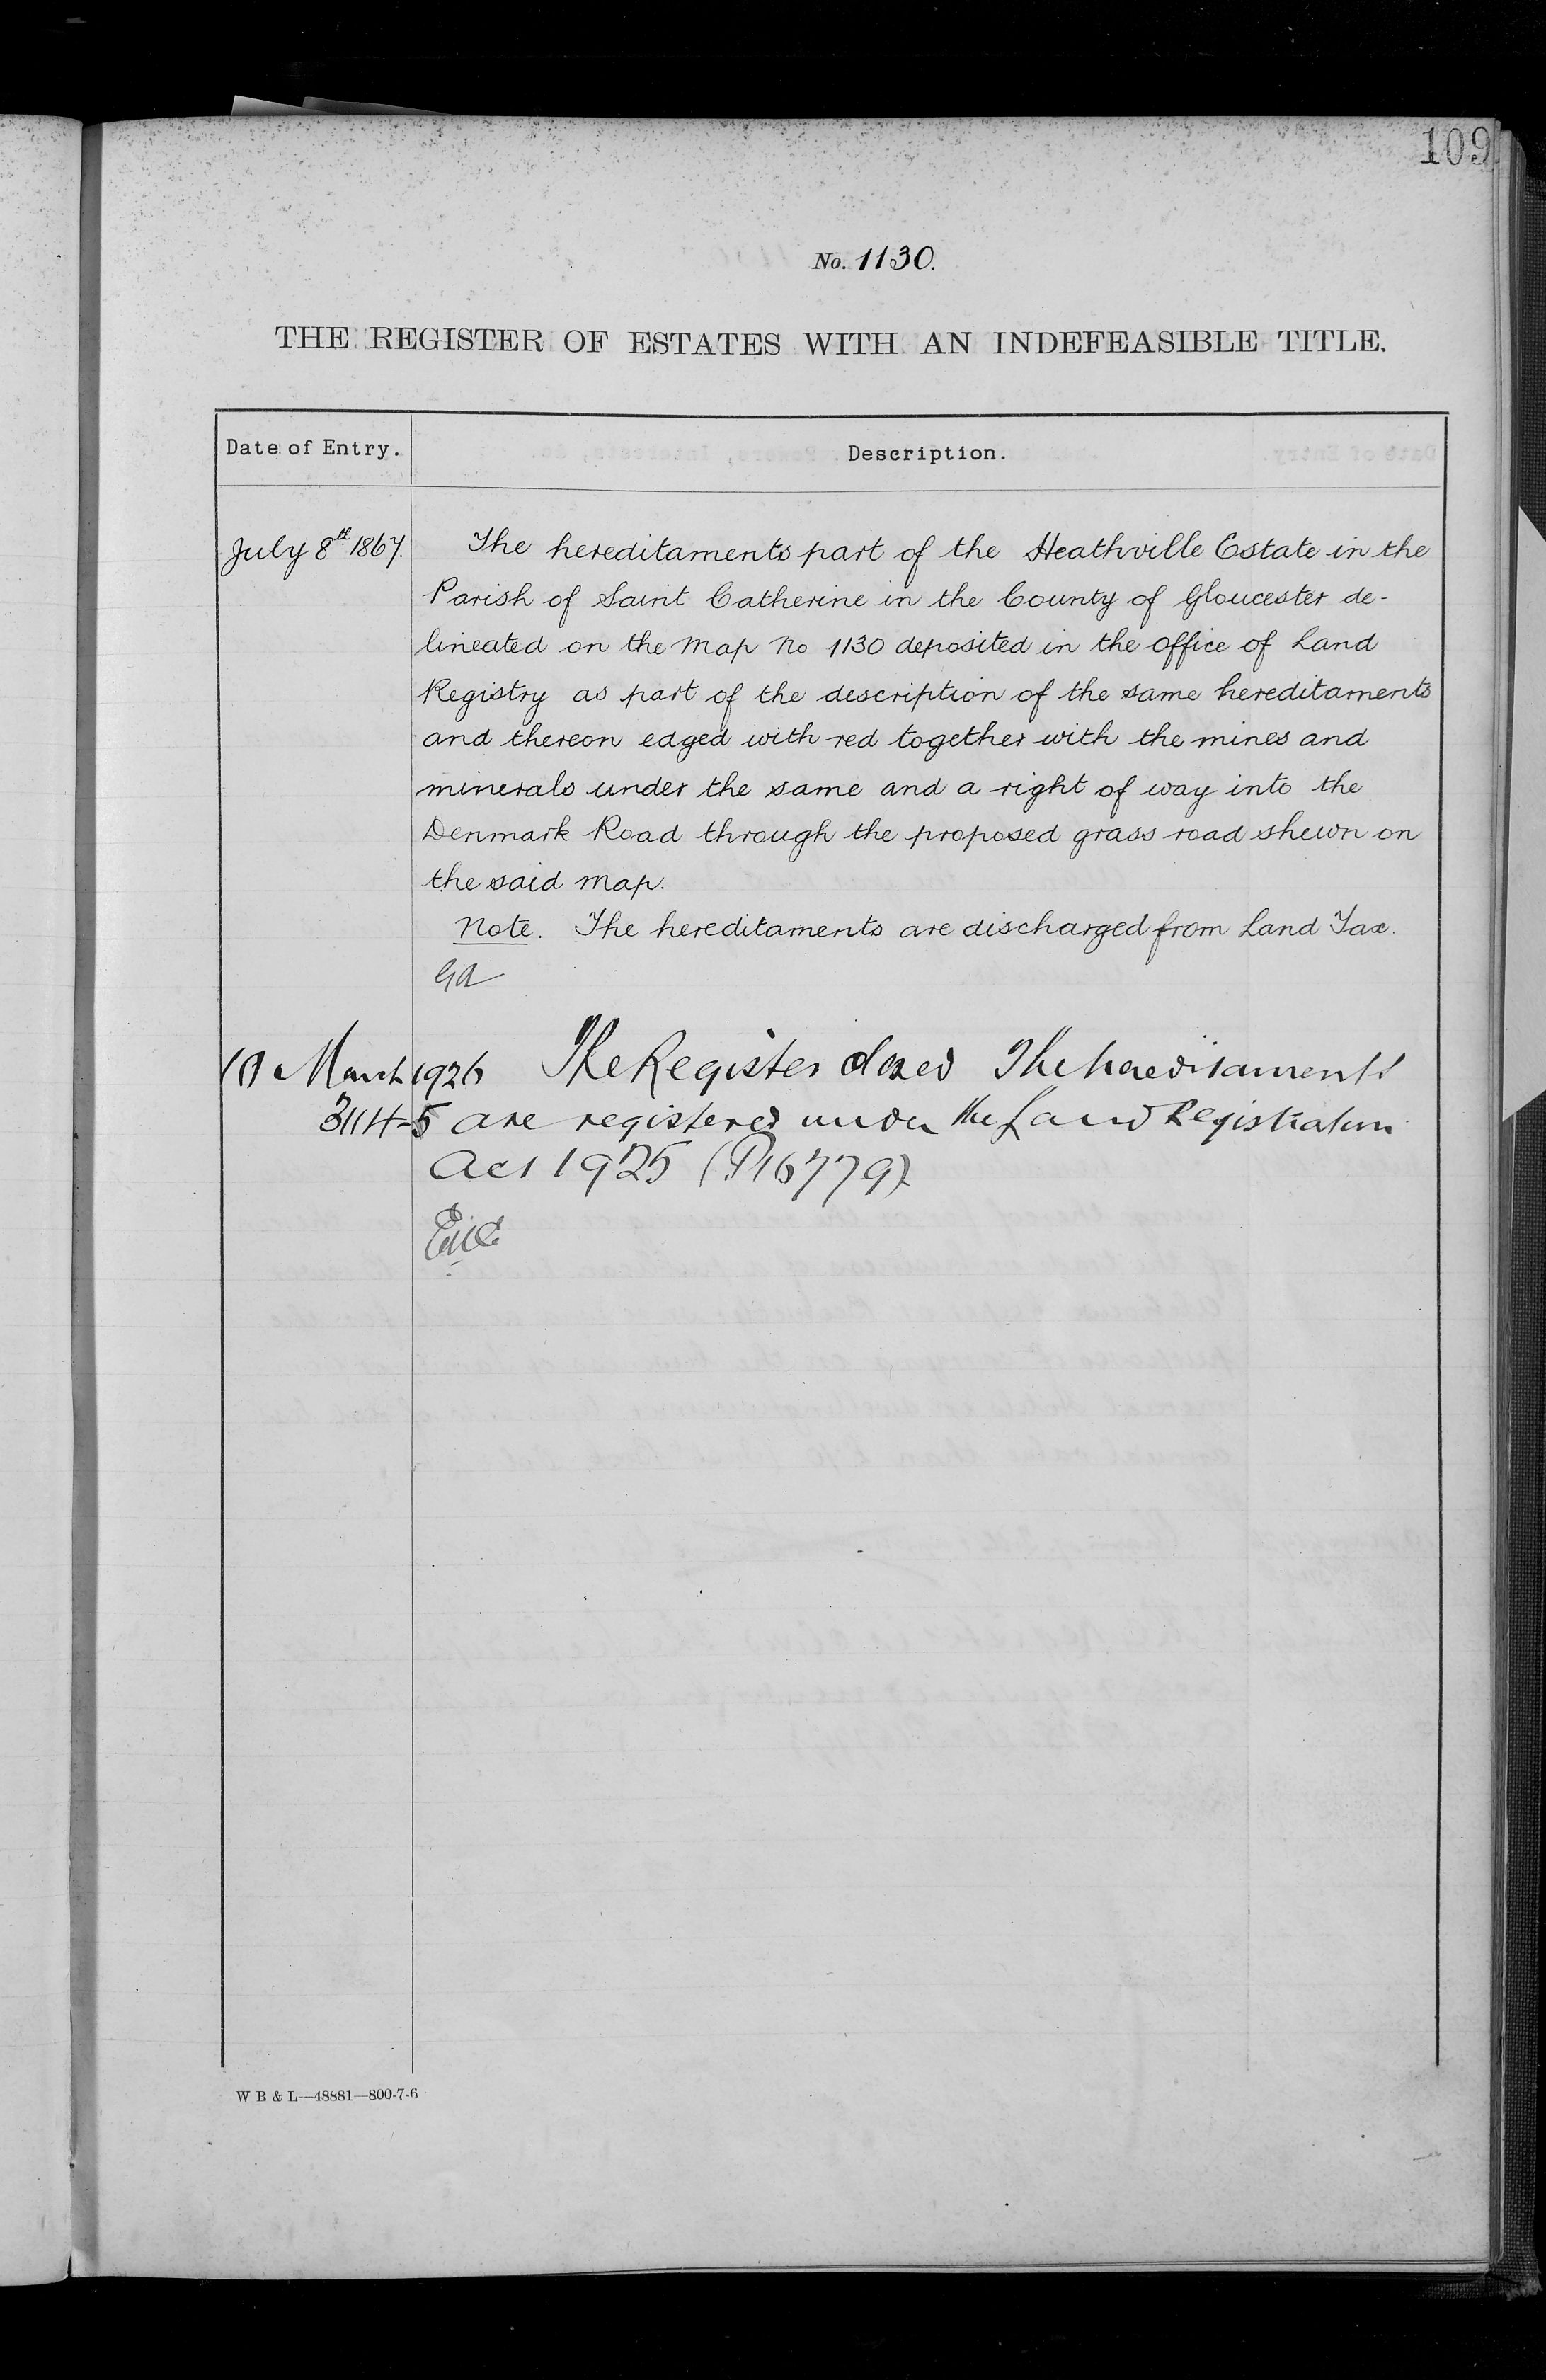 109
No. 1130.
THE REGISTER OF ESTATES WITH AN INDEFEASIBLE TITLE.
Date of Entry.
Description.
July 8th 1867.
The hereditaments part of the Heathville Estate in the
Parish of Saint Catherine in the County of Gloucester de-
lineated on the Map No 1130 deposited in the office of Land
Registry as part of the description of the same hereditaments
and thereon edged with red together with the mines and
minerals under the same and a right of way into the
Denmark Road through the proposed grass road shewn on
the said Map.
Note. The hereditaments are discharged from Land Tax.
GA
10 March 1926 The Register closed The hereditaments
3114-5 are registered under the Land Registration
Act 1925 (P16779)
W B & L—48881—800-7-6